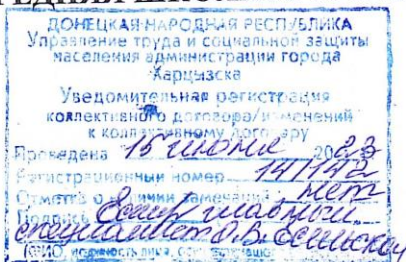 ДОНЕЦКАЯ НАРОДНАЯ РЕСПУБЛИКА
Управление труда и социальной защиты
населения администрации города
Харцызска
Уведомительная регистрация
коллективного договора/изменений
к коллективному договору
Проведена 15 июня 2023
Регистрационный номер 14/142
Отметка о наличии замечаний нет
Подпись главный
специалист О.В.